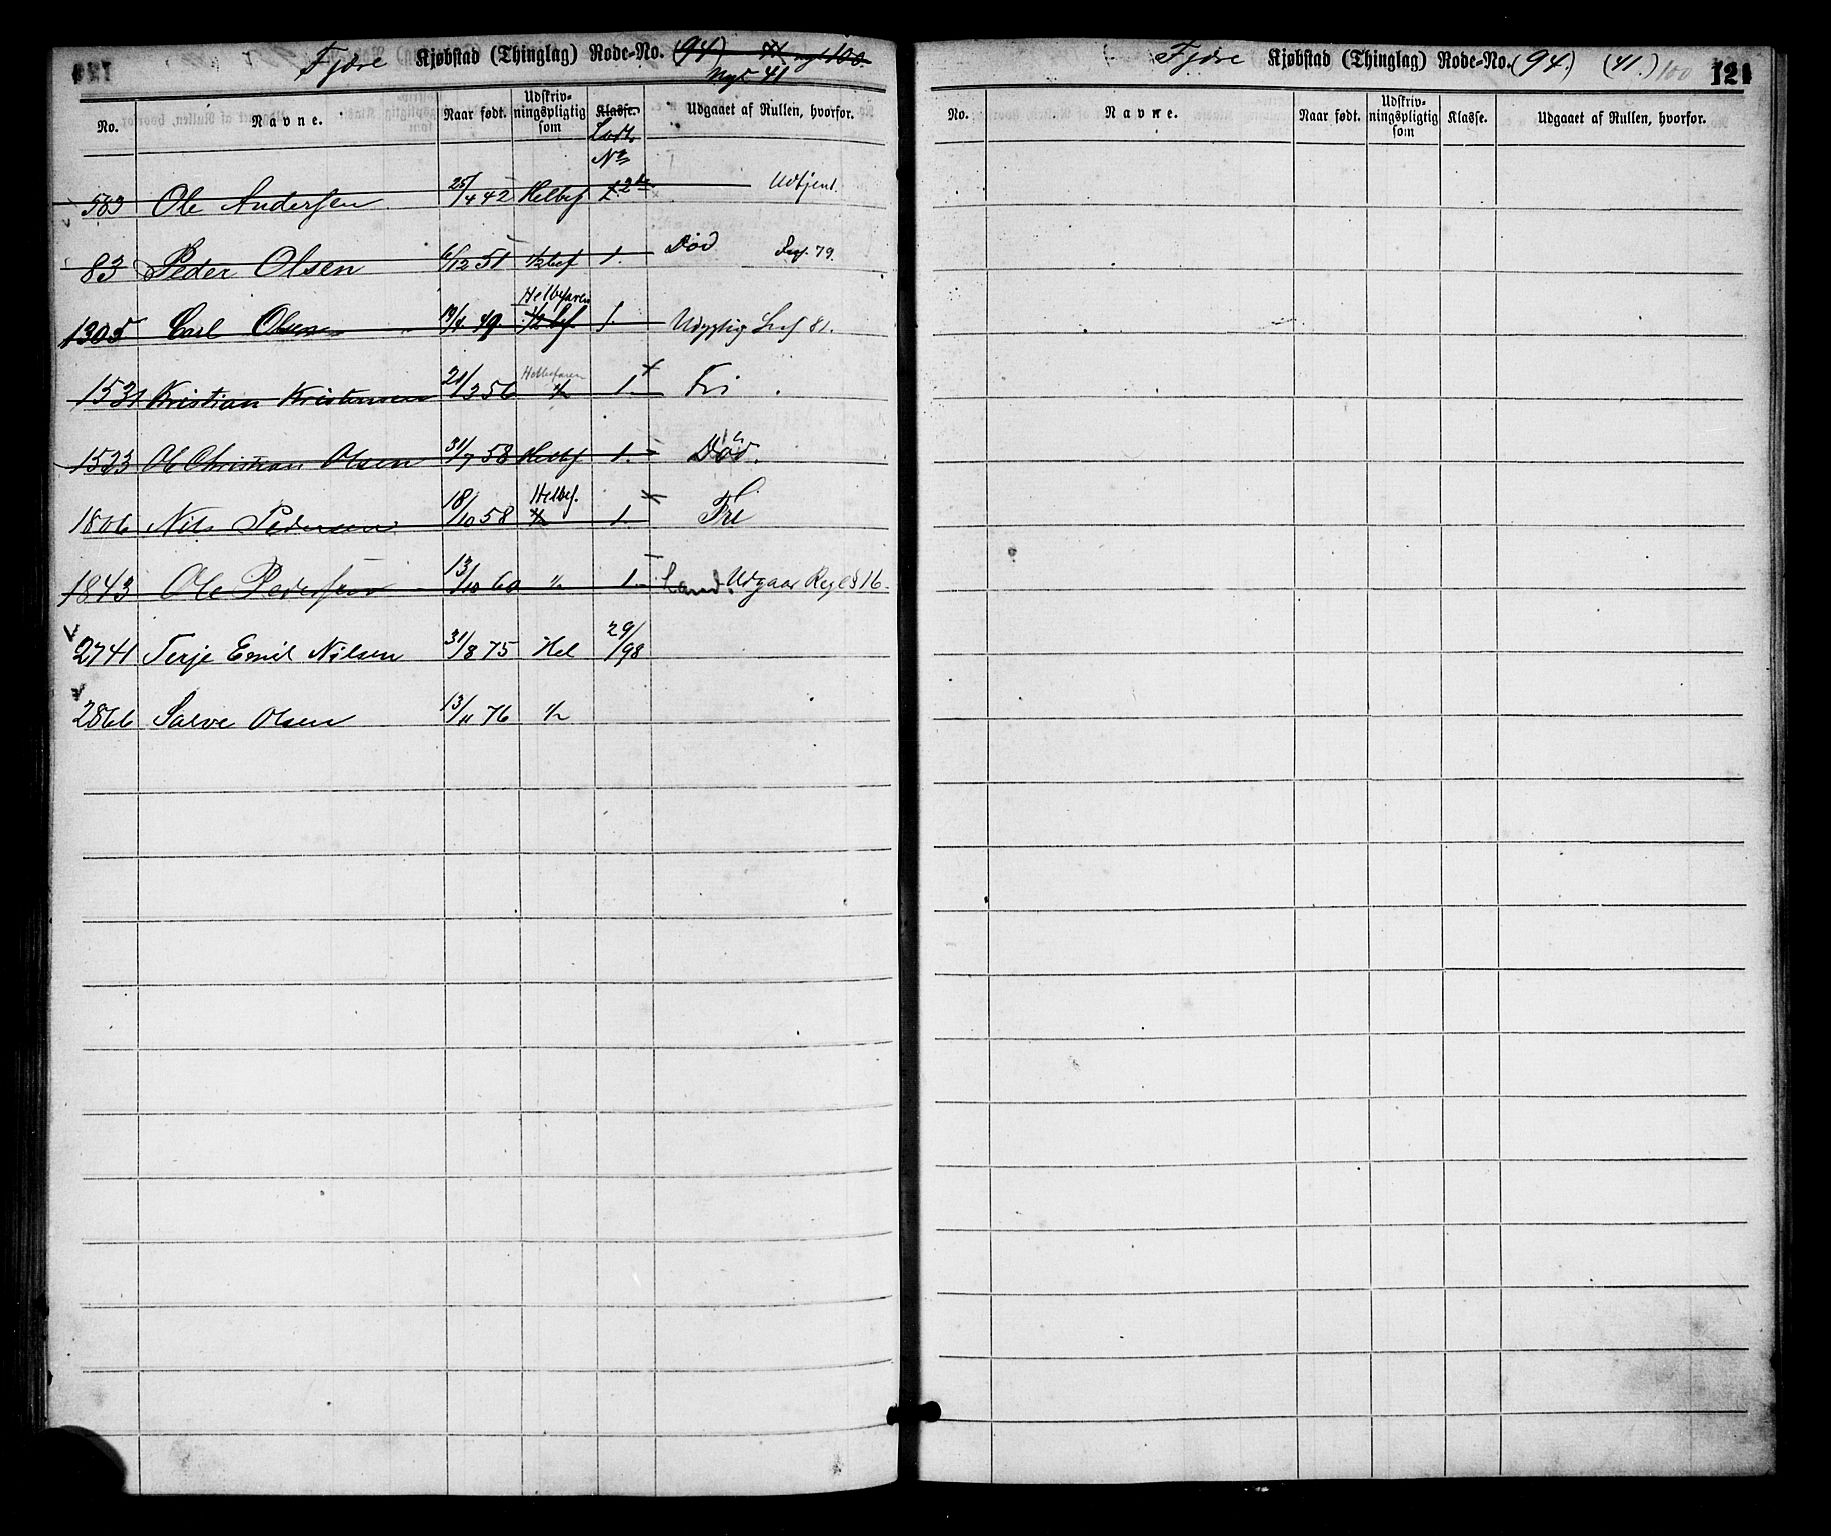 Fjære Kjøbstad (Thinglag) Rode-No. (94) 41 ny 100
Nye 41
No. Navne. Naar født. Udskriv-ningspligtig som Klasse. Udgaaet af Rullen, hvorfor.
Lodt. No
583 Ole Andersen 25/4 42 Helbef Udtjent.
83 Peder Olsen 6/12 51 1/2bef 1. Død Decf. 79.
Helbefaren
1305 Carl Olsen 19/4 49 1/2 bef 1. Udygtig 81.
Helbefaren
1531 Kristian Kristensen 21/2 56 1. Fri
1523 Ole Christian Olsen 31/7 58 Helbf 1. Død.
Helbef.
1806 Nils Pedersen 18/10 58 1. Fri
1843 Ole Pedersen 13/10 60 1. Land. Udgaar Regl § 16.
2741 Terje Emil Nilsen 31/8 75 Hel 29/98
2866 Salve Olsen 13/11 76
Fjære Kjøbstad (Thinglag) Rode-No. (94.) (41.) 100 121
No. Navne. Naar født. Udskriv-ningspligtig som Klasse. Udgaaet af Rullen, hvorfor.